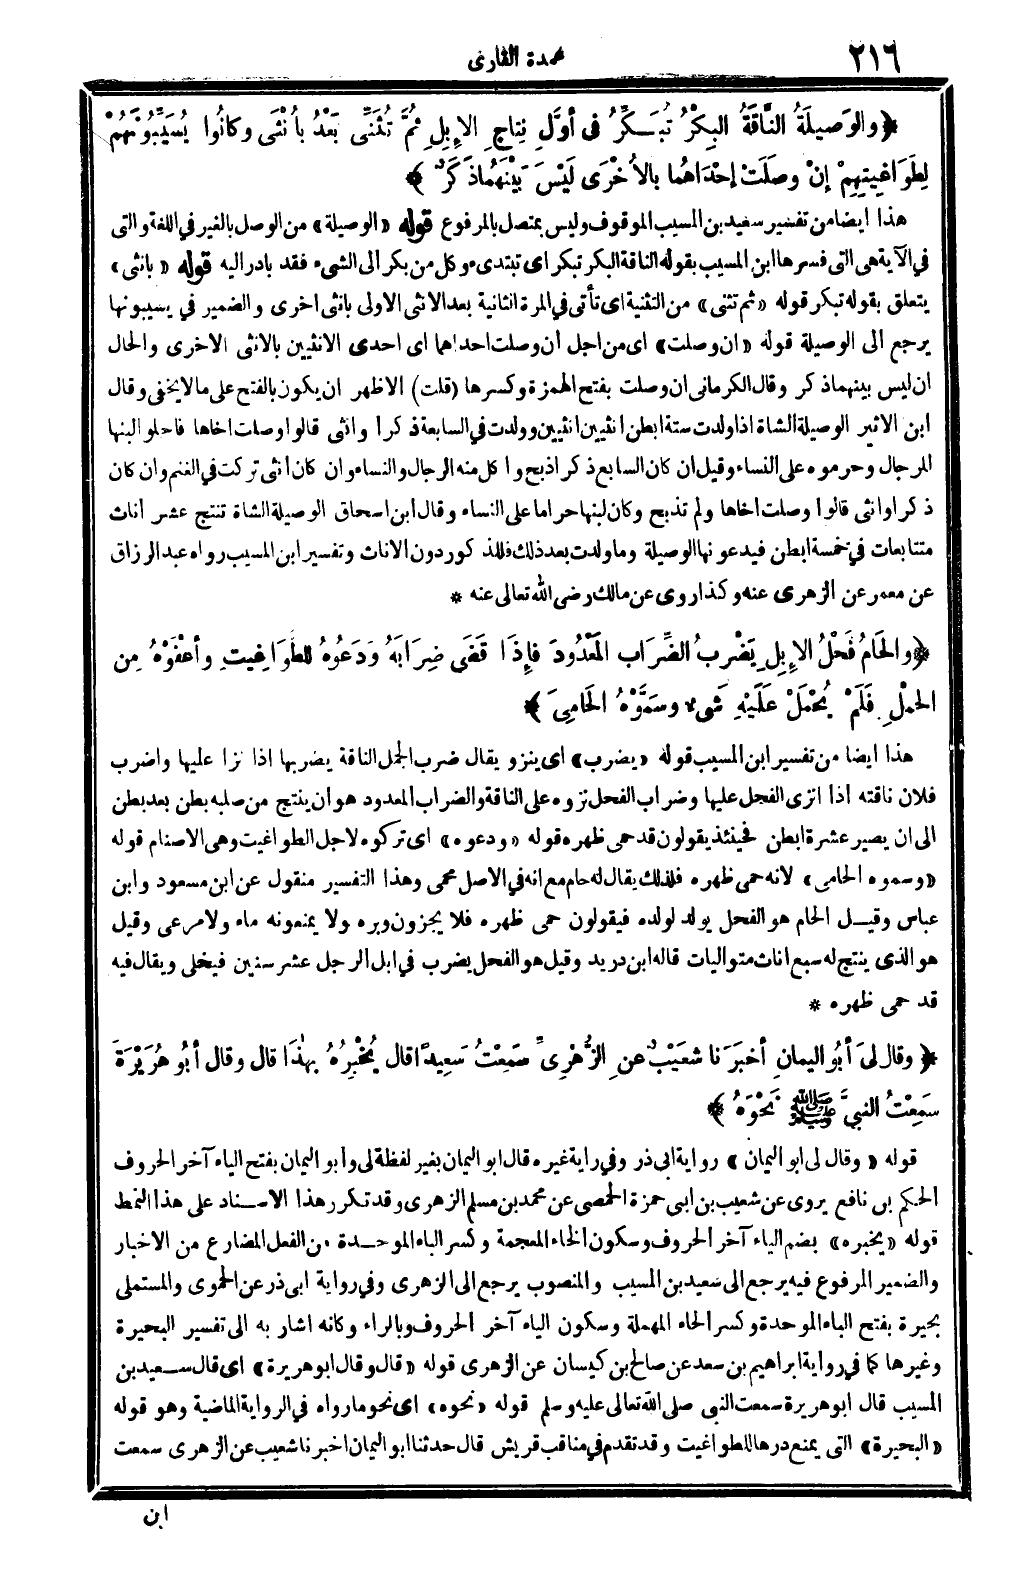 ٢١٦
عمدة القارى
﴿ والوَصِيلَةُ النَّاقَةُ البِكْرُ تُبَكِّرُ فى أوَّلِ نِتاجِ الإِبِلِ ثُمَّ تُثَنِّى بَعْدُ بأُنْثَى وكانُوا يُسَيِّبُونَهُمْ
لِطَوَاغِيتِهِمْ إنْ وصَلَتْ إحْدَاهُما بالأُخْرَى لَيْسَ بَيْنَهُماذَكَرٌ ﴾
هذا ايضا من تفسير سعيد بن المسيب الموقوف وليس بمتصل بالمرفوع قوله «الوصيلة» من الوصل بالغير فى اللغة والتى
فى الآية هى التى فسرها ابن المسيب بقوله الناقة البكر تبكر اى تبتدىء وكل من بكر الى الشىء فقد بادر اليه قوله «بانثى»
يتعلق بقوله تبكر قوله «ثم تثنى» من التثنية اى تأتى فى المرة الثانية بعد الانثى الاولى بانثى اخرى والضمير فى يسيبونها
يرجع الى الوصيلة قوله «ان وصلت» اى من اجل أن وصلت احداهما اى احدى الانثيين بالانثى الاخرى والحال
ان ليس بينهما ذكر وقال الكرمانى ان وصلت بفتح الهمزة وكسرها (قلت) الاظهر ان يكون بالفتح على مالايخفى وقال
ابن الاثير الوصيلة الشاة اذا ولدت ستة ابطن انثيين انثيين وولدت فى السابعة ذكرا وانثى قالوا وصلت اخاها فاحلوا لبنها
للرجال وحرموه على النساء وقيل ان كان السابع ذكرا ذبح واكل منه الرجال والنساء وان كان انثى تركت فى الغنم وان كان
ذكرا وانثى قالوا وصلت اخاها ولم تذبح وكان لبنها حراما على النساء وقال ابن اسحاق الوصيلة الشاة تنتج عشر أناث
متتابعات فى خمسة ابطن فيدعونها الوصيلة وما ولدت بعد ذلك فللذكور دون الاناث وتفسير ابن المسيب رواه عبد الرزاق
عن معمر عن الزهرى عنه وكذا روى عن مالك رضى الله تعالى عنه *
﴿ والحَامُ فَحْلُ الإِبِلِ يَضْرِبُ الضِّرَابَ المَعْدُودَ فإِذَا قَضَى ضِرَابَهُ ودَعُوهُ لِلطَّوَاغِيتِ وأعْفَوْهُ مِن
الحَمْلِ فَلَمْ يُحْمَلْ عَلَيْهِ شَىءٌ وسَمَّوْهُ الحَامِىَ ﴾
هذا ايضا من تفسير ابن المسيب قوله «يضرب» اى ينزو يقال ضرب الجمل الناقة يضربها اذا نزا عليها واضرب
فلان ناقته اذا انزى الفحل عليها وضراب الفحل نزوه على الناقة والضراب المعدود هو ان ينتج من صلبه بطن بعد بطن
الى ان يصير عشرة ابطن فحينئذ يقولون قد حمى ظهره قوله «ودعوه» اى تركوه لاجل الطواغيت وهى الاصنام قوله
«وسموه الحامى» لانه حمى ظهره فلذلك يقال له حام مع انه فى الاصل محمى وهذا التفسير منقول عن ابن مسعود وابن
عباس وقيل الحام هو الفحل يولد لولده فيقولون حمى ظهره فلا يجزون وبره ولا يمنعونه ماء ولا مرعى وقيل
هو الذى ينتج له سبع اناث متواليات قاله ابن دريد وقيل هو الفحل يضرب فى ابل الرجل عشر سنين فيخلى ويقال فيه
قد حمى ظهره *
﴿ وقال لِىَ أبُو اليمانِ أخبَرَنا شعَيْبٌ عنِ الزُّهْرِىِّ سَمِعْتُ سَعِيدًا قال يُخْبِرُهُ بِهٰذَا قال وقال أبُو هُرَيْرَةَ
سَمِعْتُ النبىَّ ﷺ نَحْوَهُ ﴾
قوله «وقال لى ابو اليمان» رواية ابى ذر وفى رواية غيره قال ابو اليمان بغير لفظة لى وأبو اليمان بفتح الياء آخر الحروف
الحكم بن نافع يروى عن شعيب بن ابى حمزة الحمصى عن محمد بن مسلم الزهرى وقد تكرر هذا الاسناد على هذا النمط
قوله «يخبره» بضم الياء آخر الحروف وسكون الخاء المعجمة وكسر الباء الموحدة من الفعل المضارع من الاخبار
والضمير المرفوع فيه يرجع الى سعيد بن المسيب والمنصوب يرجع الى الزهرى وفى رواية ابى ذر عن الحموى والمستملى
بحيرة بفتح الباء الموحدة وكسر الحاء المهملة وسكون الياء آخر الحروف وبالراء وكانه اشار به الى تفسير البحيرة
وغيرها كما فى رواية ابراهيم بن سعد عن صالح بن كيسان عن الزهرى قوله «قال وقال ابو هريرة» اى قال سعيد بن
المسيب قال ابو هريرة سمعت النبى صلى الله تعالى عليه وسلم قوله «نحوه» اى نحو مارواه فى الرواية الماضية وهو قوله
«البحيرة» التى يمنع درها للطواغيت وقد تقدم فى مناقب قريش قال حدثنا ابو اليمان اخبرنا شعيب عن الزهرى سمعت
ابن